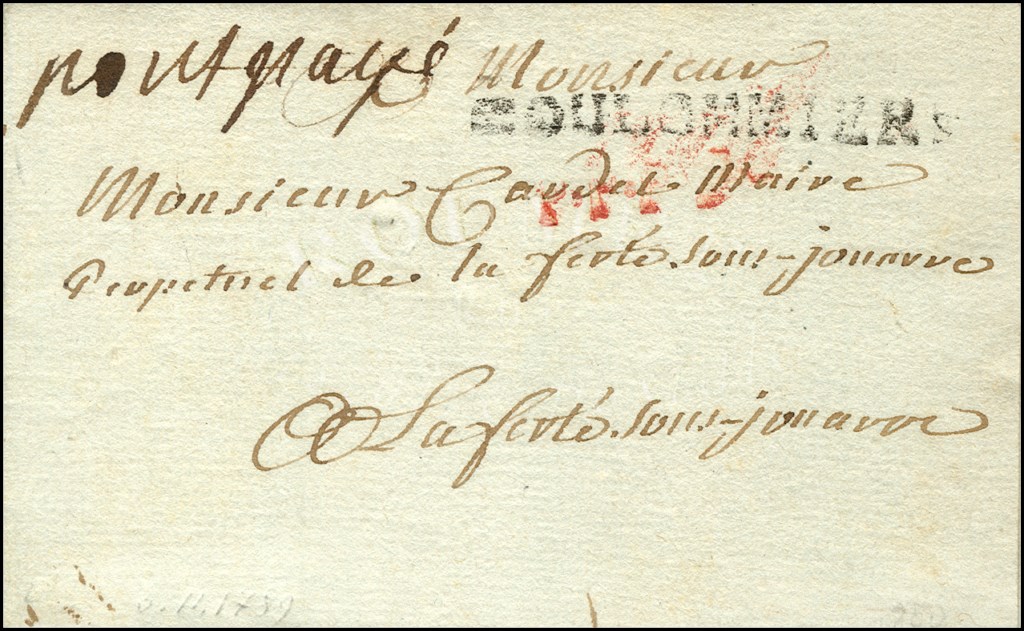 port payé Monsieur
COULOMMIERS
Monsieur Cardet Maire
Perpetuel de la ferté-sous-jouarre
A La ferté-sous-jouarre
1789